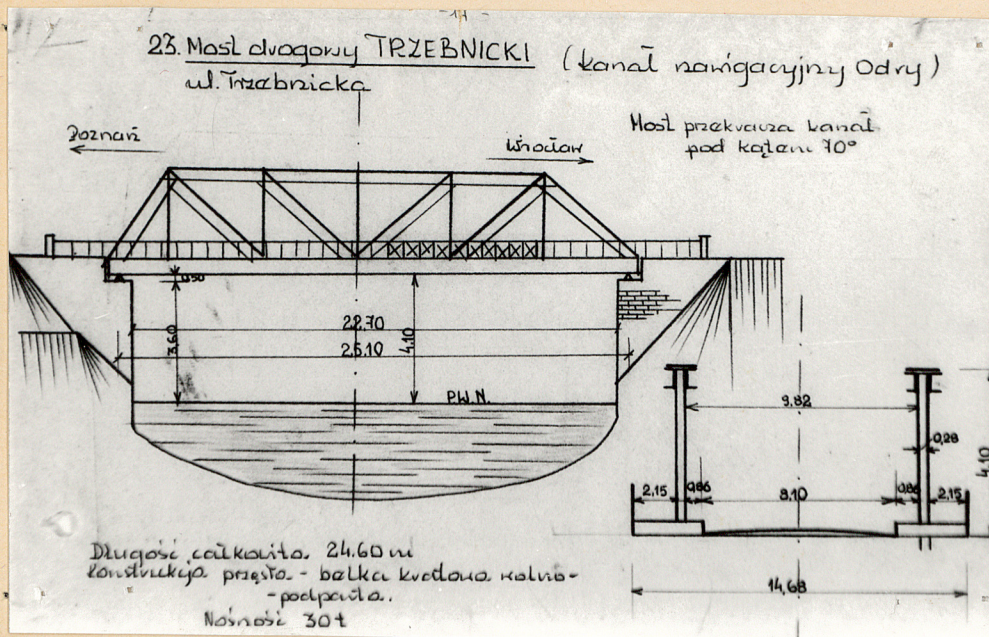 23. Most drogowy TRZEBNICKI (kanał nawigacyjny Odry)
ul. Trzebnicka
Most przekracza kanał
pod kątem 70°
Poznań
Wrocław
0.50
3.60
22.70
25.10
4.10
P.W.N.
9.82
0,28
4.10
2,15
0,86
8,10
0,86
2,15
14,68
Długość całkowita 24.60 m
Konstrukcja przęsła - belka kratowa wolno-
-podparta.
Nośność 30t